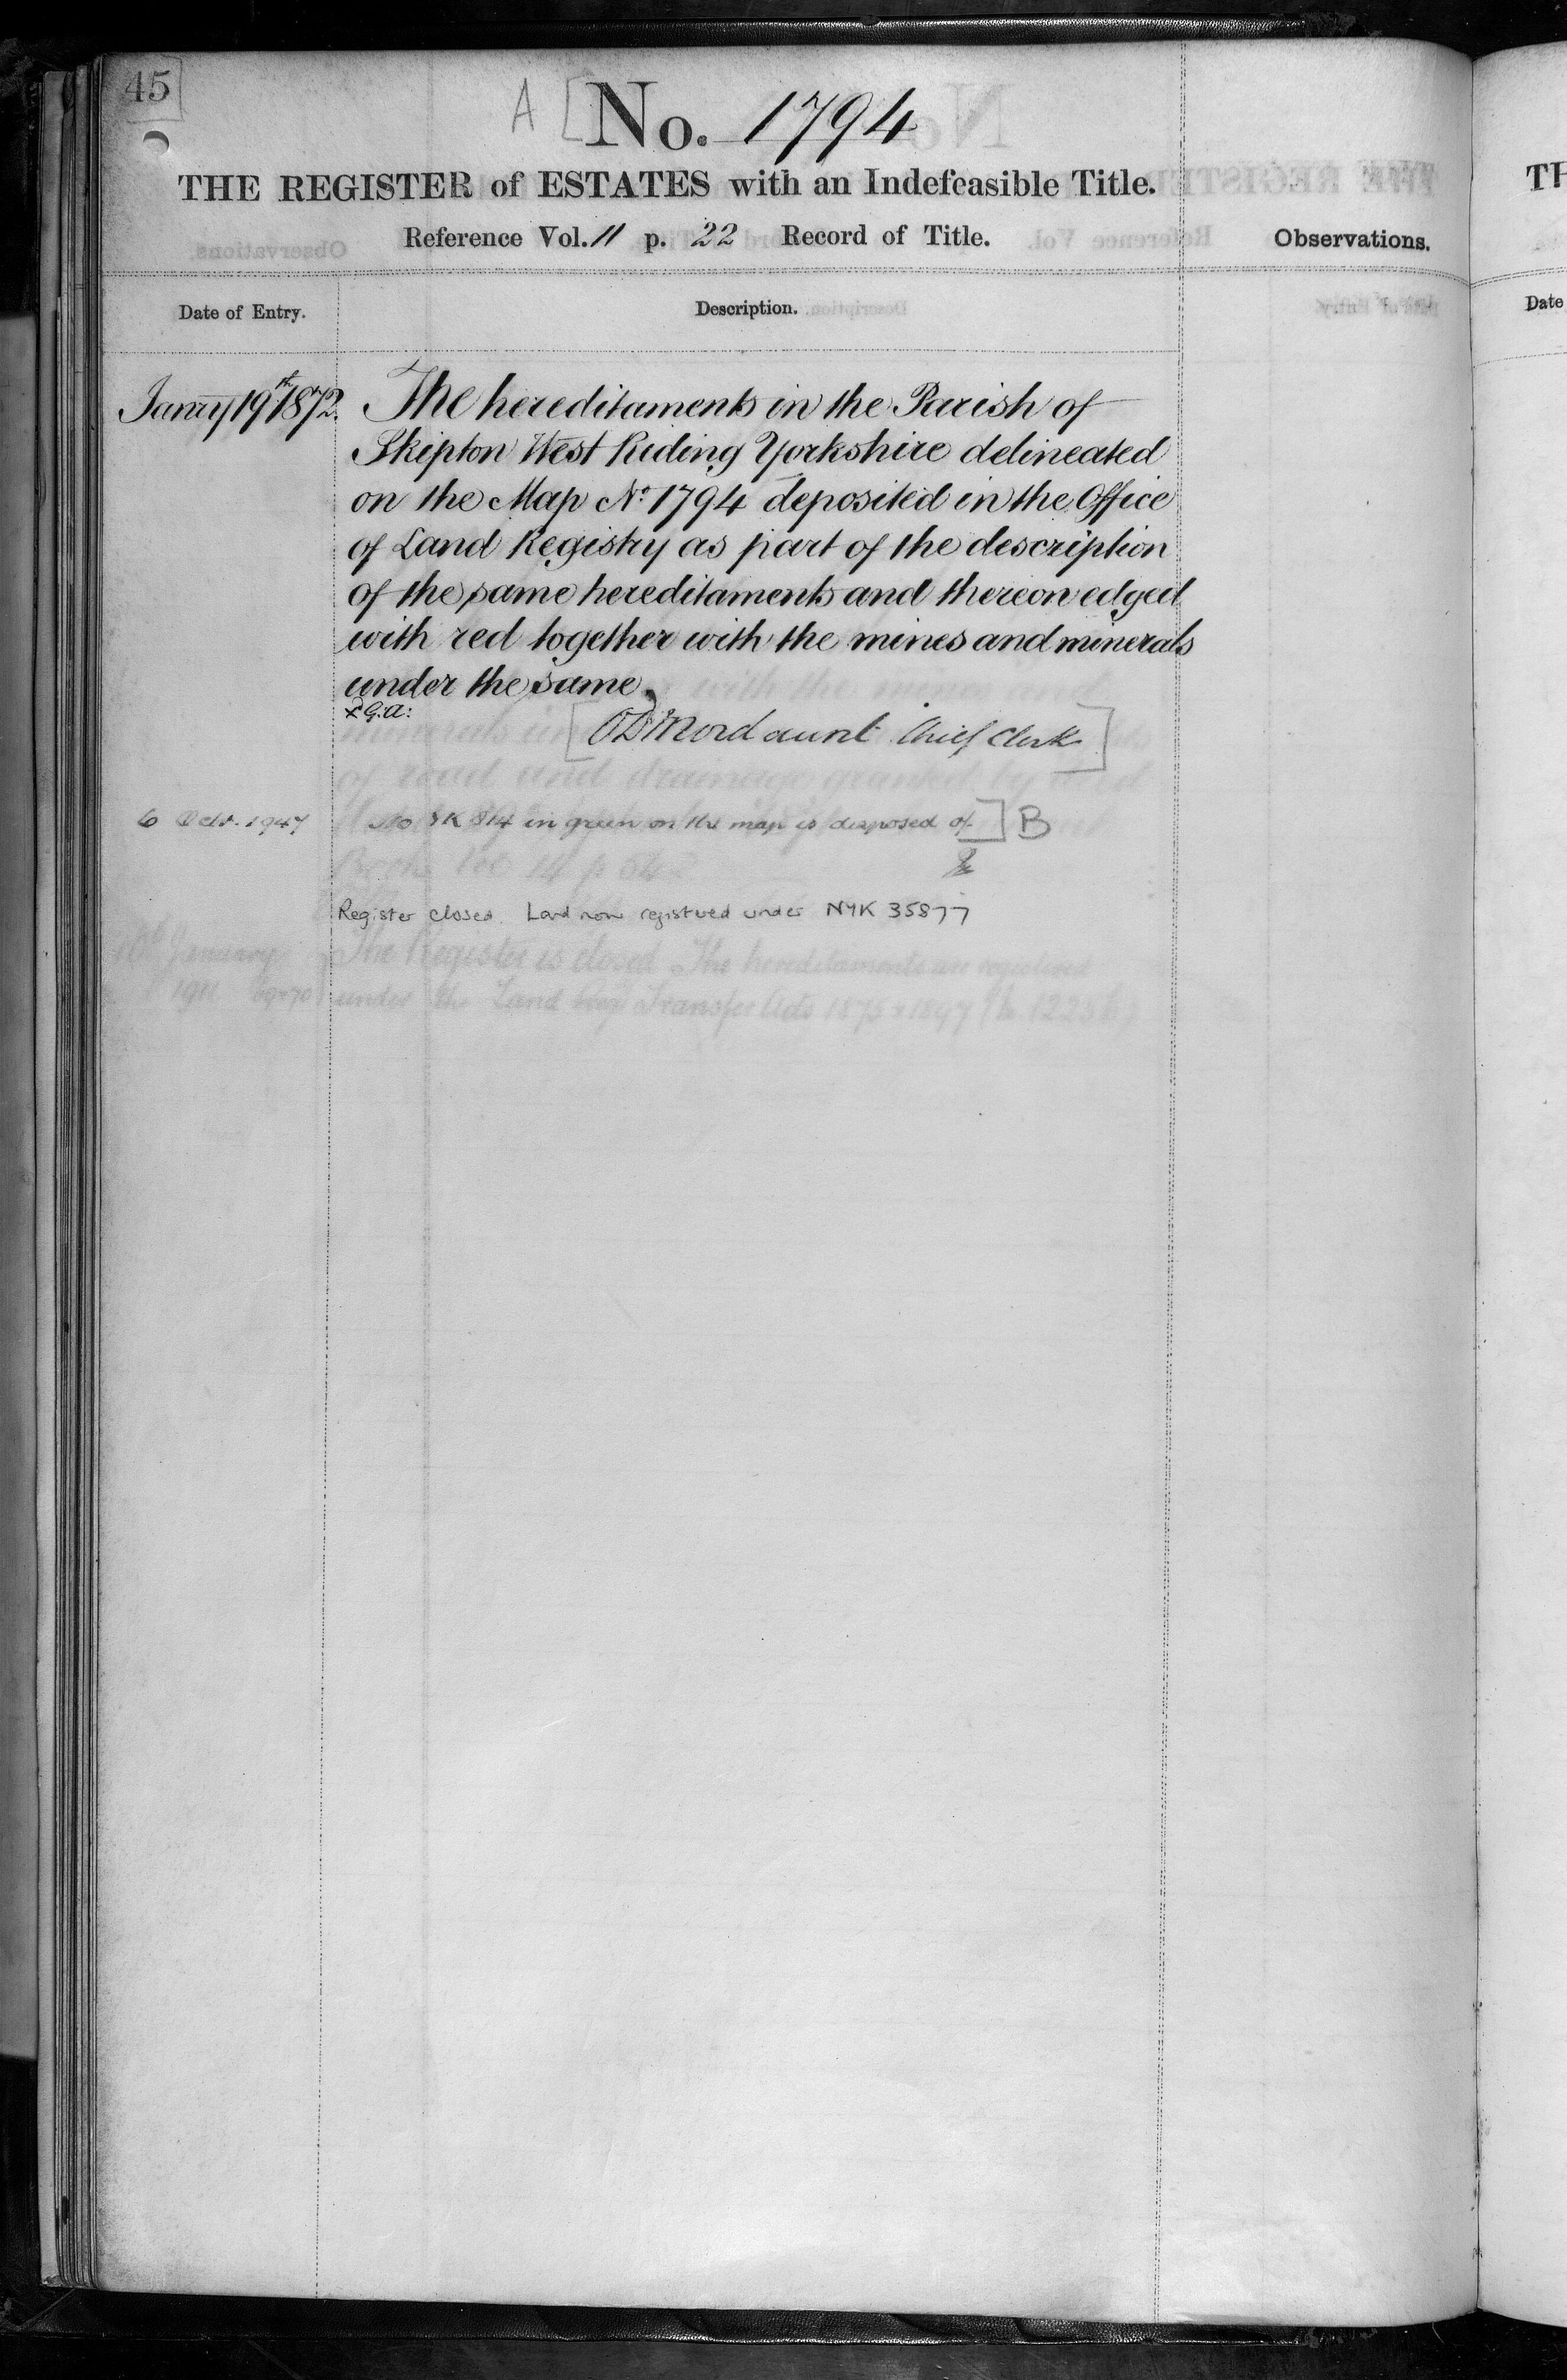 45
A [No. 1794
THE REGISTER of ESTATES with an Indefeasible Title.
Reference Vol. 11 p. 22 Record of Title.
Observations.
Date of Entry.
Description.
Janry 19th 1872. The hereditaments in the Parish of
Skipton West Riding Yorkshire delineated
on the Map No. 1794 deposited in the Office
of Land Registry as part of the description
of the same hereditaments and thereon edged
with red together with the mines and minerals
under the same.
G.A:
[Mordaunt Chief Clerk]
6 Octr. 1947 No in green on the map is disposed of] B
Register closed. Land now registered under NYK 35877
The Register is closed The hereditaments are registered
1911 under the Land Transfer Acts 1875 & 1897
TH
Date